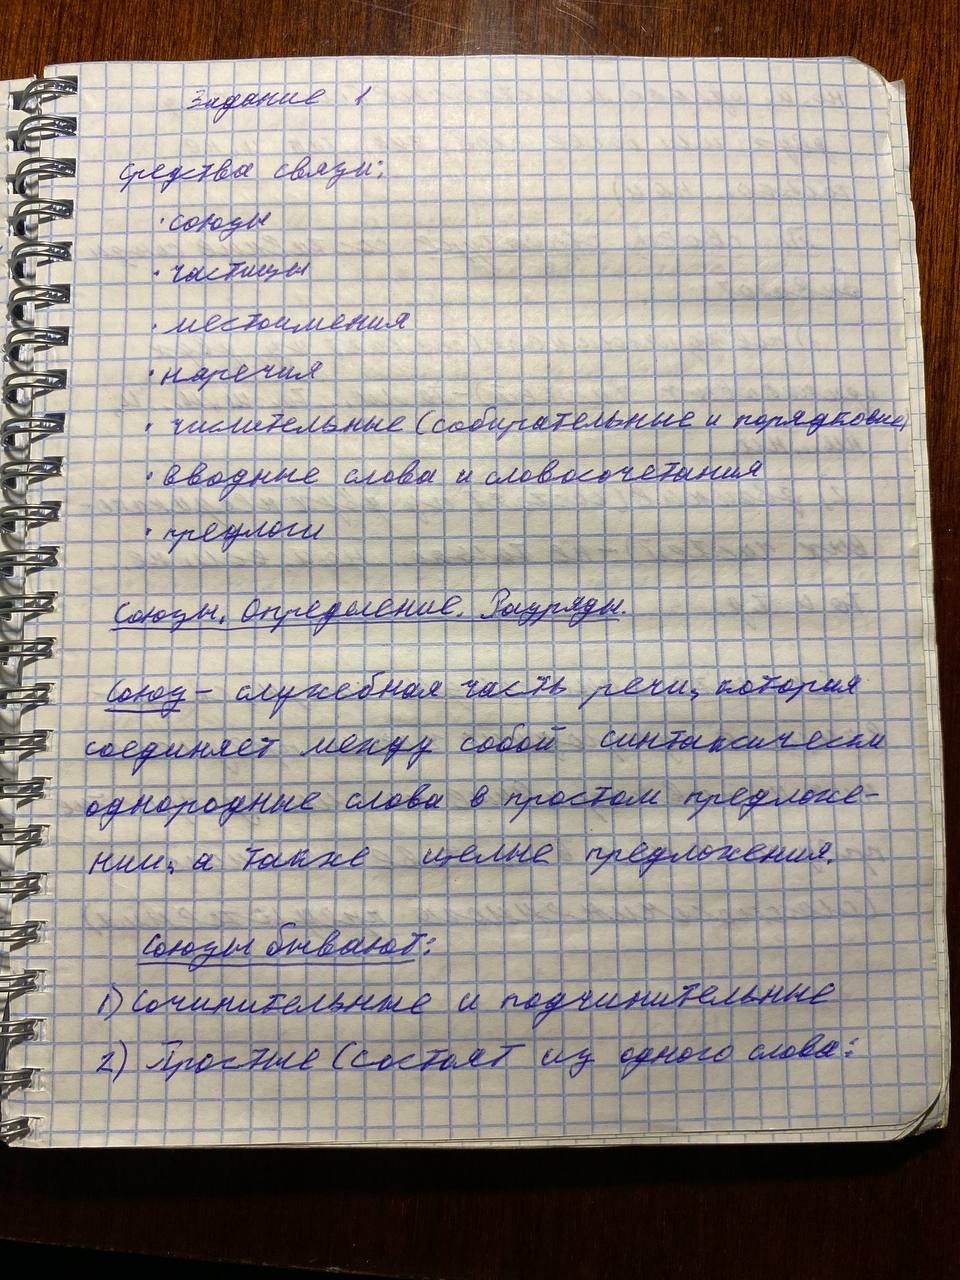 Задание 1
Средства связи:
· союзы
· частицы
· местоимения
· наречия
· числительные (собирательные и порядковые)
· вводные слова и словосочетания
· предлоги
Союзы. Определение. Разряды.
Союз – служебная часть речи, которая
соединяет между собой синтаксически
однородные слова в простом предложе-
нии, а также целые предложения.
Союзы бывают:
1) Сочинительные и подчинительные
2) Простые (состоят из одного слова: